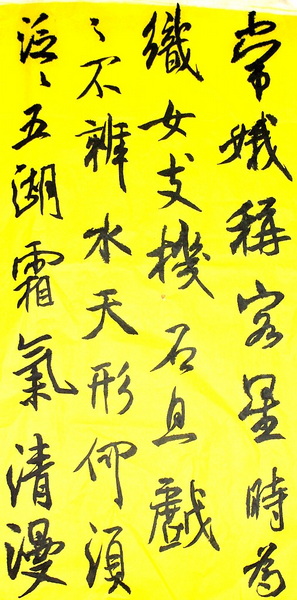 泛〻五湖霜氣清漫
〻不辨水天形何須
織女支機石且戲
常娥稱客星時為